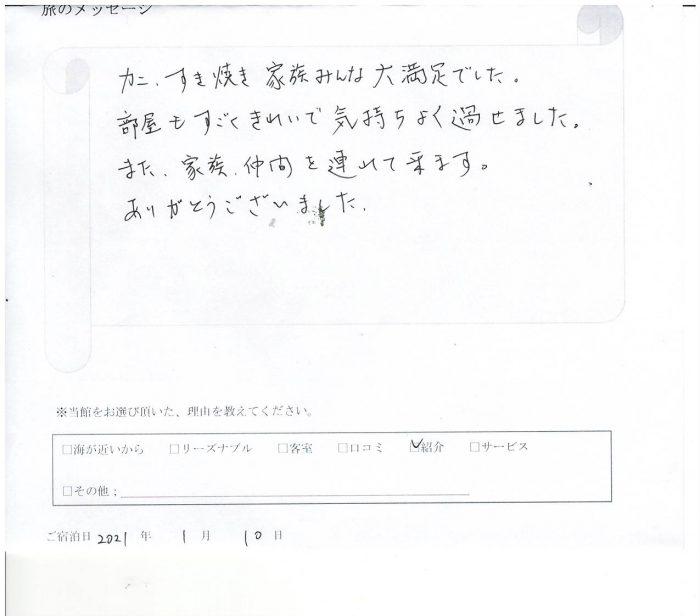 旅のメッセージ
カニ、すき焼き 家族みんな大満足でした。
部屋もすごくきれいで気持ちよく過せました。
また、家族、仲間を連れて来ます。
ありがとうございました。
※当館をお選び頂いた、理由を教えてください。
□海が近いから □リーズナブル □客室 □口コミ ☑紹介 □サービス
□その他：
ご宿泊日 2021 年 1 月 10 日